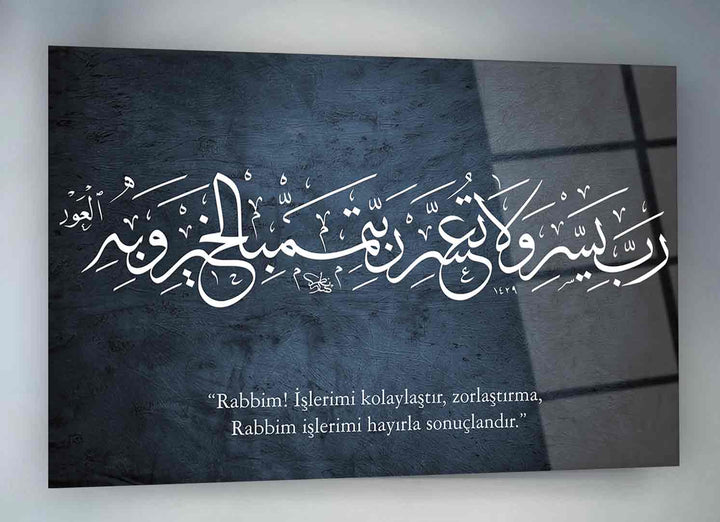 رَبِّ يَسِّرْ وَلَا تُعَسِّرْ رَبِّ تَمِّمْ بِالْخَيْرِ وَبِهِ الْعَوْن
١٤٢٩
“Rabbim! İşlerimi kolaylaştır, zorlaştırma,
Rabbim işlerimi hayırla sonuçlandır.”